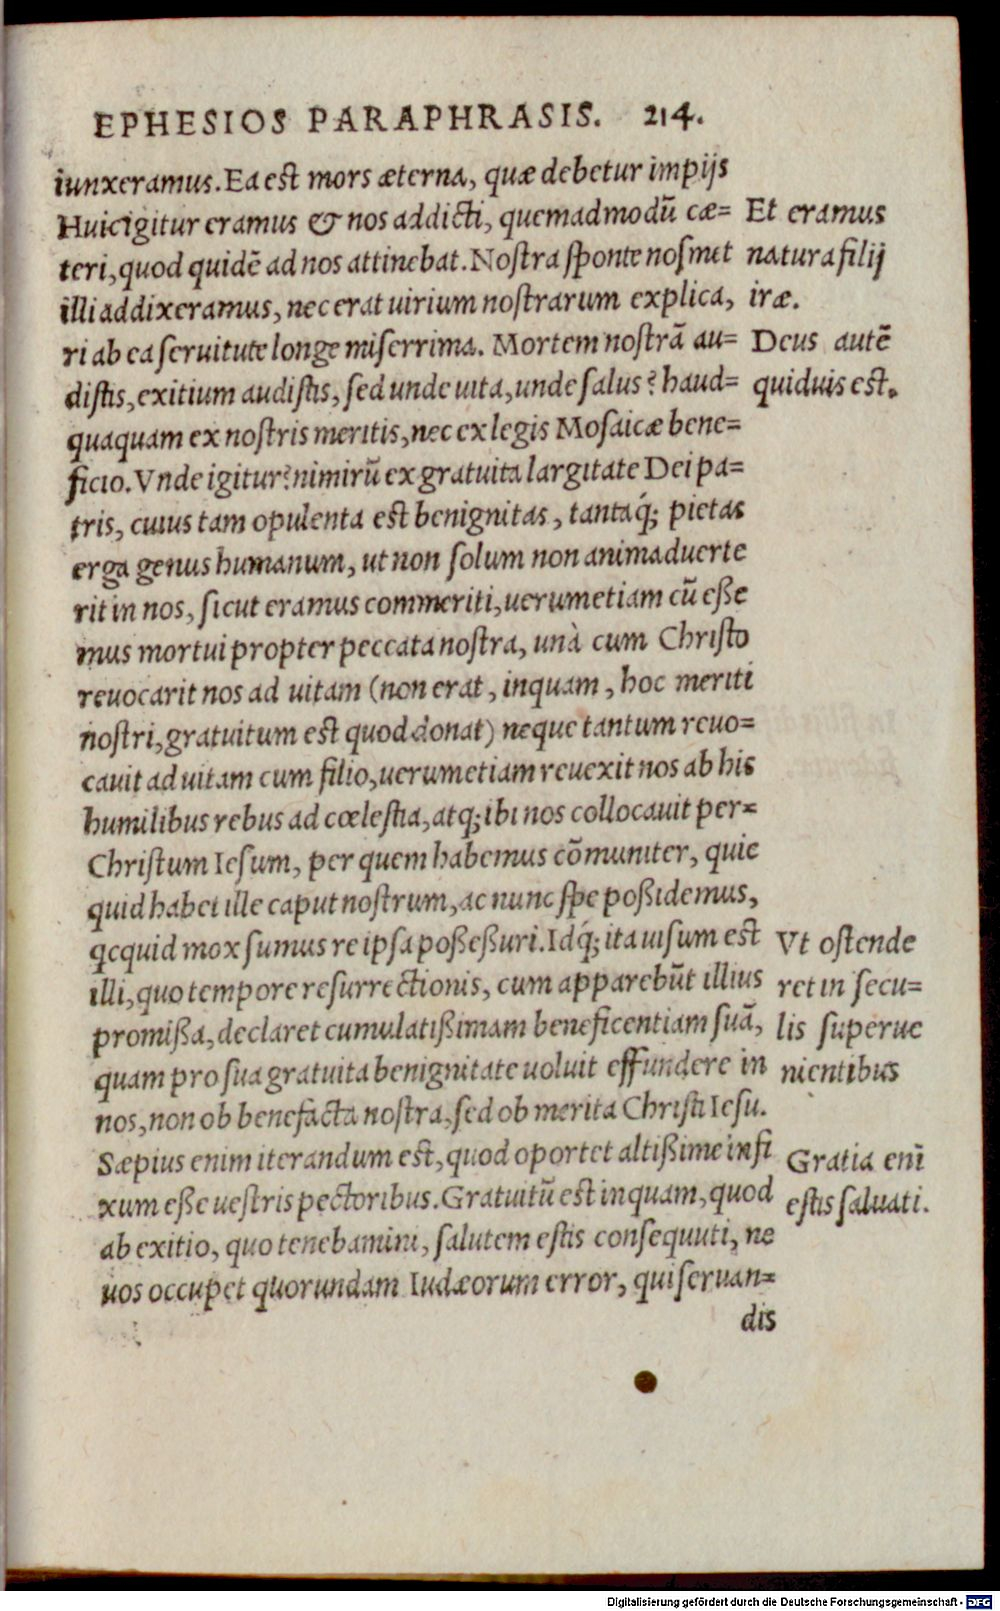 EPHESIOS PARAPHRASIS. 214.
iunxeramus. Ea est mors æterna, quæ debetur impijs
Huic igitur eramus & nos addicti, quemadmodū cæ=
teri, quod quidē ad nos attinebat. Nostra sponte nosmet
illi addixeramus, nec erat uirium nostrarum explica,
ri ab ea seruitute longe miserrima. Mortem nostrā au=
distis, exitium audistis, sed unde uita, unde salus? haud=
quaquam ex nostris meritis, nec ex legis Mosaicæ bene=
ficio. Vnde igitur? nimirū ex gratuita largitate Dei pa=
tris, cuius tam opulenta est benignitas, tantaq́; pietas
erga genus humanum, ut non solum non animaduerte
rit in nos, sicut eramus commeriti, uerumetiam cū esse
mus mortui propter peccata nostra, unà cum Christo
reuocarit nos ad uitam (non erat, inquam, hoc meriti
nostri, gratuitum est quod donat) neque tantum reuo=
cauit ad uitam cum filio, uerumetiam reuexit nos ab his
humilibus rebus ad cœlestia, atq; ibi nos collocauit per=
Christum Iesum, per quem habemus cōmuniter, quic
quid habet ille caput nostrum, ac nunc spe possidemus,
qcquid mox sumus re ipsa possessuri. Idq́; ita uisum est
illi, quo tempore resurrectionis, cum apparebūt illius
promissa, declaret cumulatissimam beneficentiam suā,
quam pro sua gratuita benignitate uoluit effundere in
nos, non ob benefacta nostra, sed ob merita Christi Iesu.
Sæpius enim iterandum est, quod oportet altissime infi
xum esse uestris pectoribus. Gratuitū est inquam, quod
ab exitio, quo tenebamini, salutem estis consequuti, ne
uos occupet quorundam Iudæorum error, qui seruan=
dis
Et eramus
natura filij
iræ.
Deus autē
quiduis est.
Vt ostende
ret in secu=
lis superue
nientibus
Gratia enī
estis saluati.
Digitalisierung gefördert durch die Deutsche Forschungsgemeinschaft - DFG